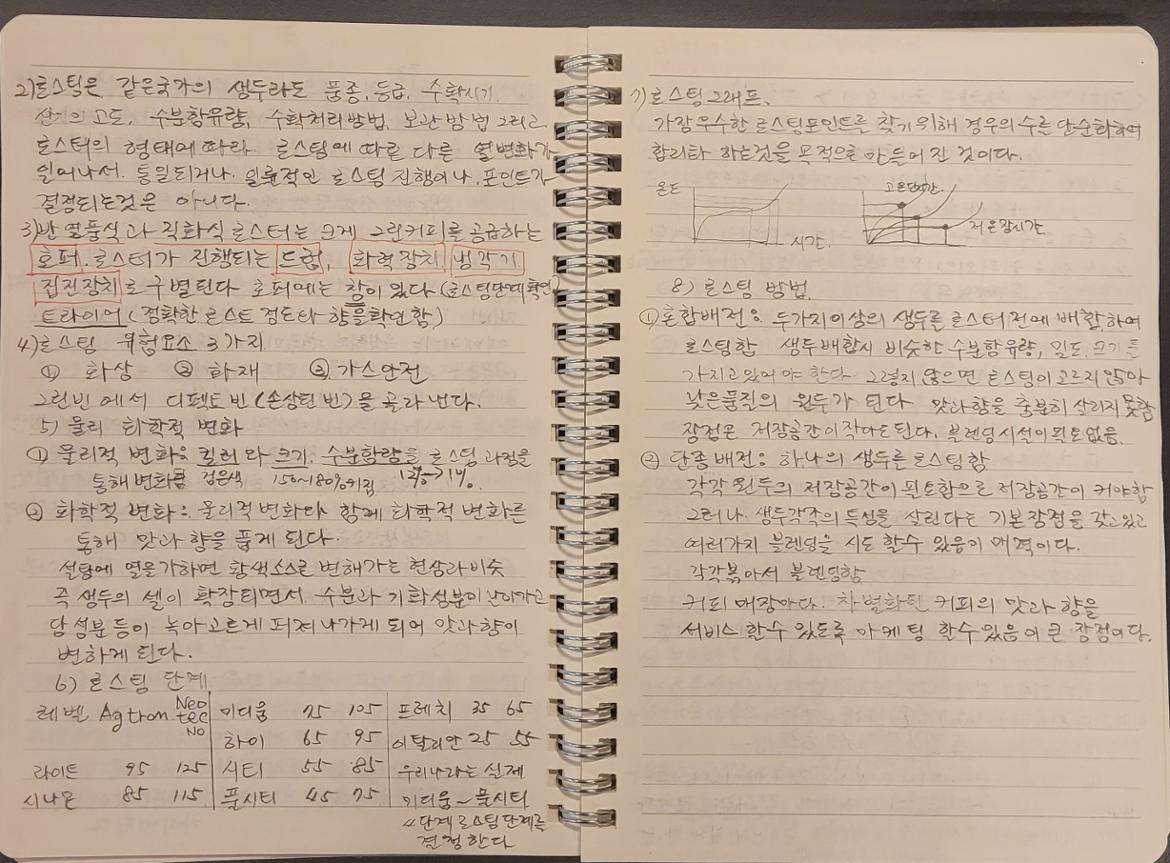 2)로스팅은 같은국가의 생두라도 품종, 등급, 수확시기.
산지의 고도, 수분함유량, 수확처리방법, 보관방법 그리고
로스터의 형태에 따라. 로스팅에 따른 다른 열변화가
일어나서. 통일되거나. 일률적인 로스팅 진행이나. 포인트가
결정되는것은 아니다.
3)반열풍식과 직화식 로스터는 크게 그린커피를 공급하는
호퍼. 로스터가 진행되는 드럼, 화력장치 냉각기
집진장치로 구별된다 호퍼에는 창이 있다(로스팅단계확인)
트라이어(정확한 로스트 정도와 향을확인함)
4)로스팅 위험요소 3가지
① 화상 ② 화재 ③ 가스안전
그린빈에서 디펙트빈(손상된 빈)을 골라낸다.
5) 물리 화학적 변화
① 물리적 변화: 컬러와 크기. 수분함량을 로스팅 과정을
통해 변화함 검은색 150~180%커짐 12%→1%.
② 화학적 변화: 물리적변화와 함께 화학적 변화를
통해 맛과 향을 품게 된다.
설탕에 열을가하면 황색소스로 변해가는 현상과비슷
즉 생두의 셀이 확장되면서. 수분과 기화성분이 날아가고
당성분등이 녹아고르게 퍼져나가게 되어 맛과향이
변하게 된다.
6) 로스팅 단계
레벨 Agtron Neo tec No 미디움 75 105 프레치 35 65
하이 65 95 이탈리안 25 55
라이트 95 125 시티 55 85 우리나라는 실제
시나몬 85 115 풀시티 45 75 미디움~풀시티
4단계 로스팅단계를
결정한다
7)로스팅그래프.
가장우수한 로스팅포인트를 찾기위해 경우의수를 단순화하여
합리화 하는것을 목적으로 만들어진 것이다.
온도 고온단시간
시간. 저온장시간
8) 로스팅 방법.
①혼합배전: 두가지이상의 생두를 로스터전에 배합하여
로스팅함 생두배합시 비슷한 수분함유량, 밀도. 크기를
가지고 있어야 한다 그렇지 않으면 로스팅이 고르지 않아
낮은품질의 원두가 된다. 맛과향을 충분히 살리지 못함
장점은 저장공간이작아도된다. 블렌딩시설이필요없음.
② 단종배전: 하나의 생두를로스팅함
각각 원두의 저장공간이 필요함으로 저장공간이 커야함
그러나. 생두각각의 특성을 살린다는 기본장점을 갖고있고
여러가지 블렌딩을 시도 할수 있음이 매력이다.
각각볶아서 블렌딩함
커피 매장마다. 차별화된 커피의 맛과 향을
서비스 할수 있도록 마케팅 할수있음이 큰 장점이당.